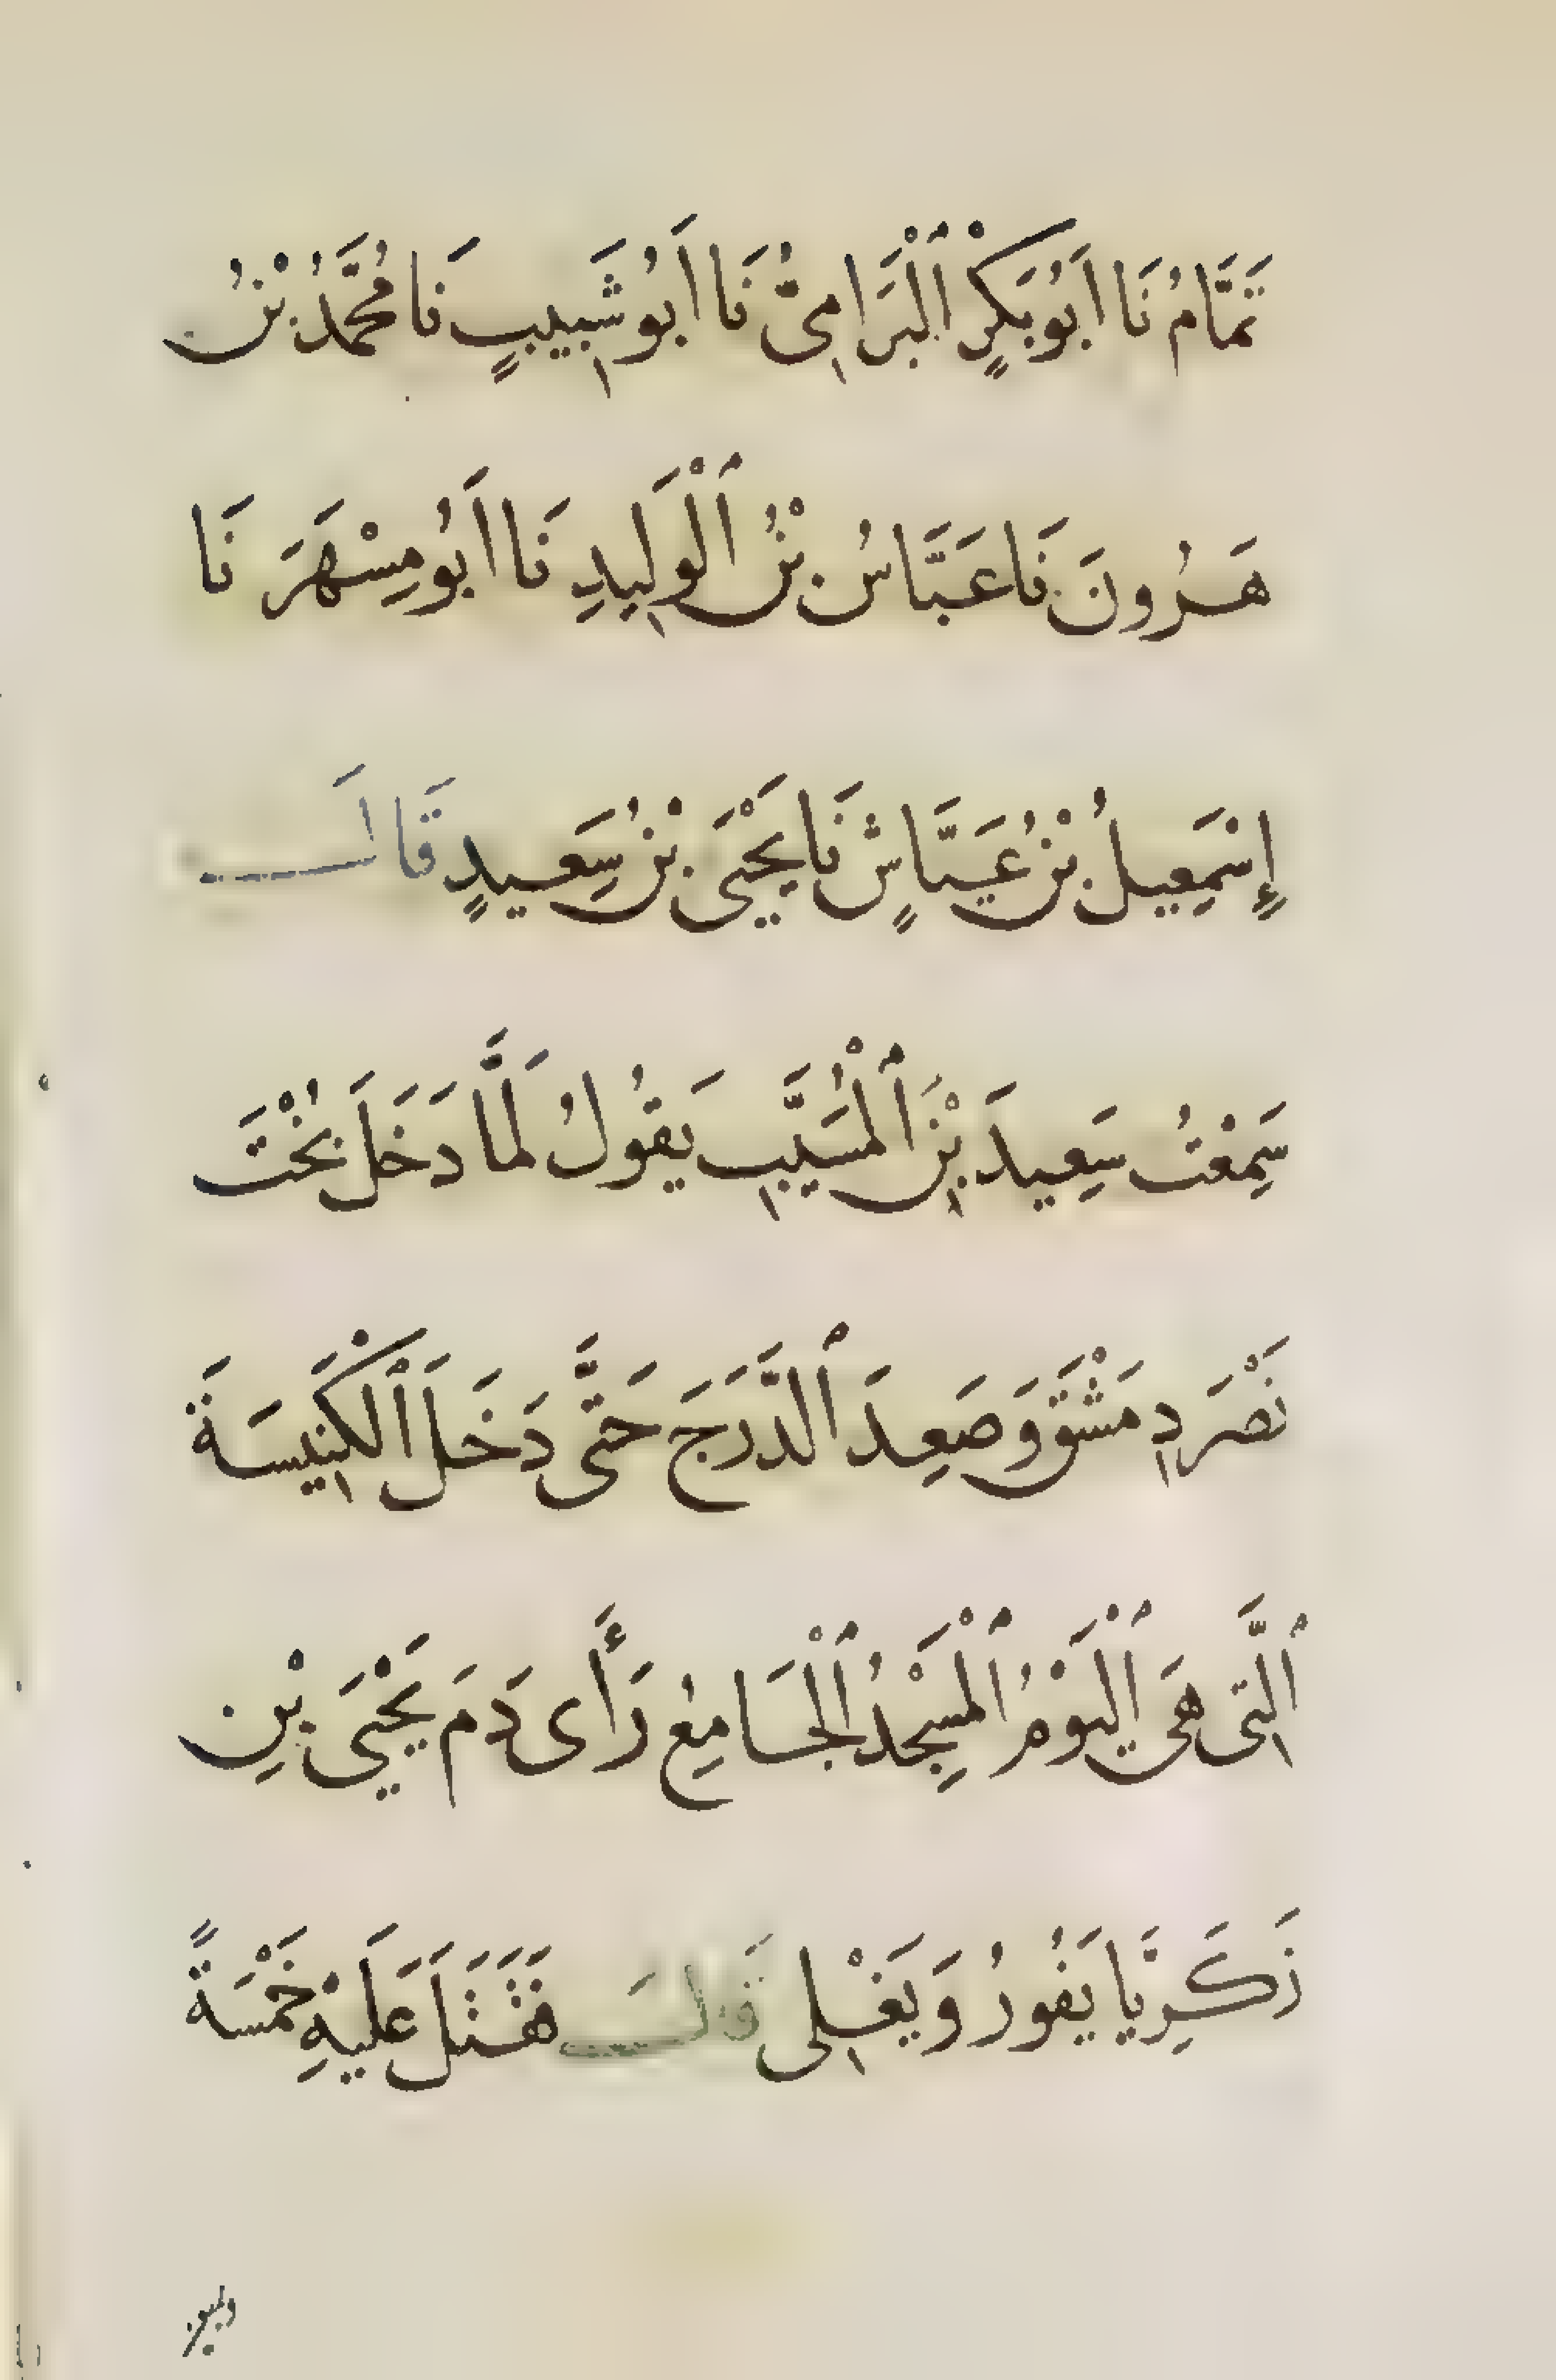 تَمَّامُ نَا اَبُو بَكَرٍ ٱلْبَرَامِىُّ نَا اَبُو شَبِيبٍ نَا مُحَمَّدُ بْنُ
هَرُونَ نَا عَبَّاسُ بْنُ ٱلْوَلِيدِ نَا اَبُو مِسْهَرَ نَا
إِسْمَعِيلُ بْنُ عَيَّاشٍ نَا يَحْيَى بْنُ سَعِيدٍ قَالَ
سَمِعْتُ سَعِيدَ بْنَ ٱلْمُسَيَّبِ يَقُولُ لَمَّا دَخَلَ بُخْتَ
نَصْرَ دِمَشْقَ وَصَعِدَ ٱلدَّرَجَ حَتَّى دَخَلَ ٱلْكَنِيسَةَ
ٱلَّتِى هَى ٱلْيَوْمُ ٱلْمَسْجِدُ ٱلْجَامِعُ رَأَى دَمَ يَحْيَى بْنِ
زَكَرِيَّا يَفُورُ وَيَغْلِى قَالَ فَقَتَلَ عَلَيْهِ خَمْسَةً
وسبعين